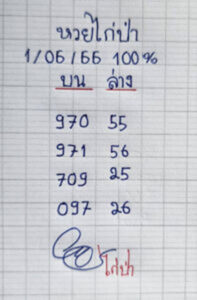 หวยไก่ป่า
1/06/66 100%
บน ล่าง
970 55
971 56
709 25
097 26
ไก่ป่า